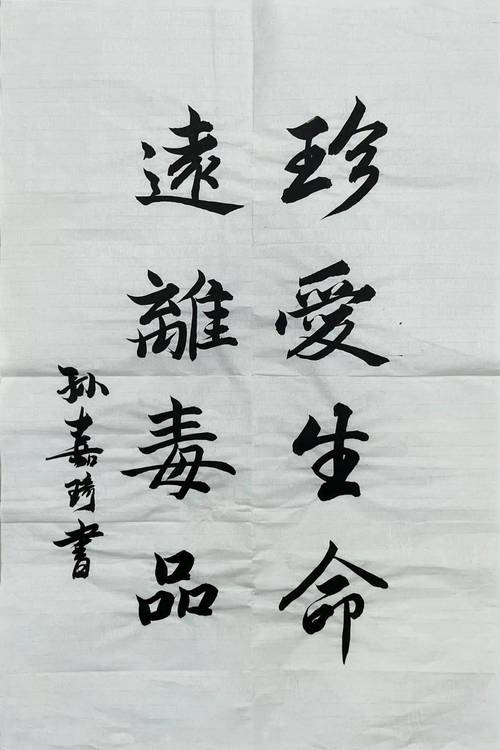 珍愛生命
遠離毒品
孙嘉琦書